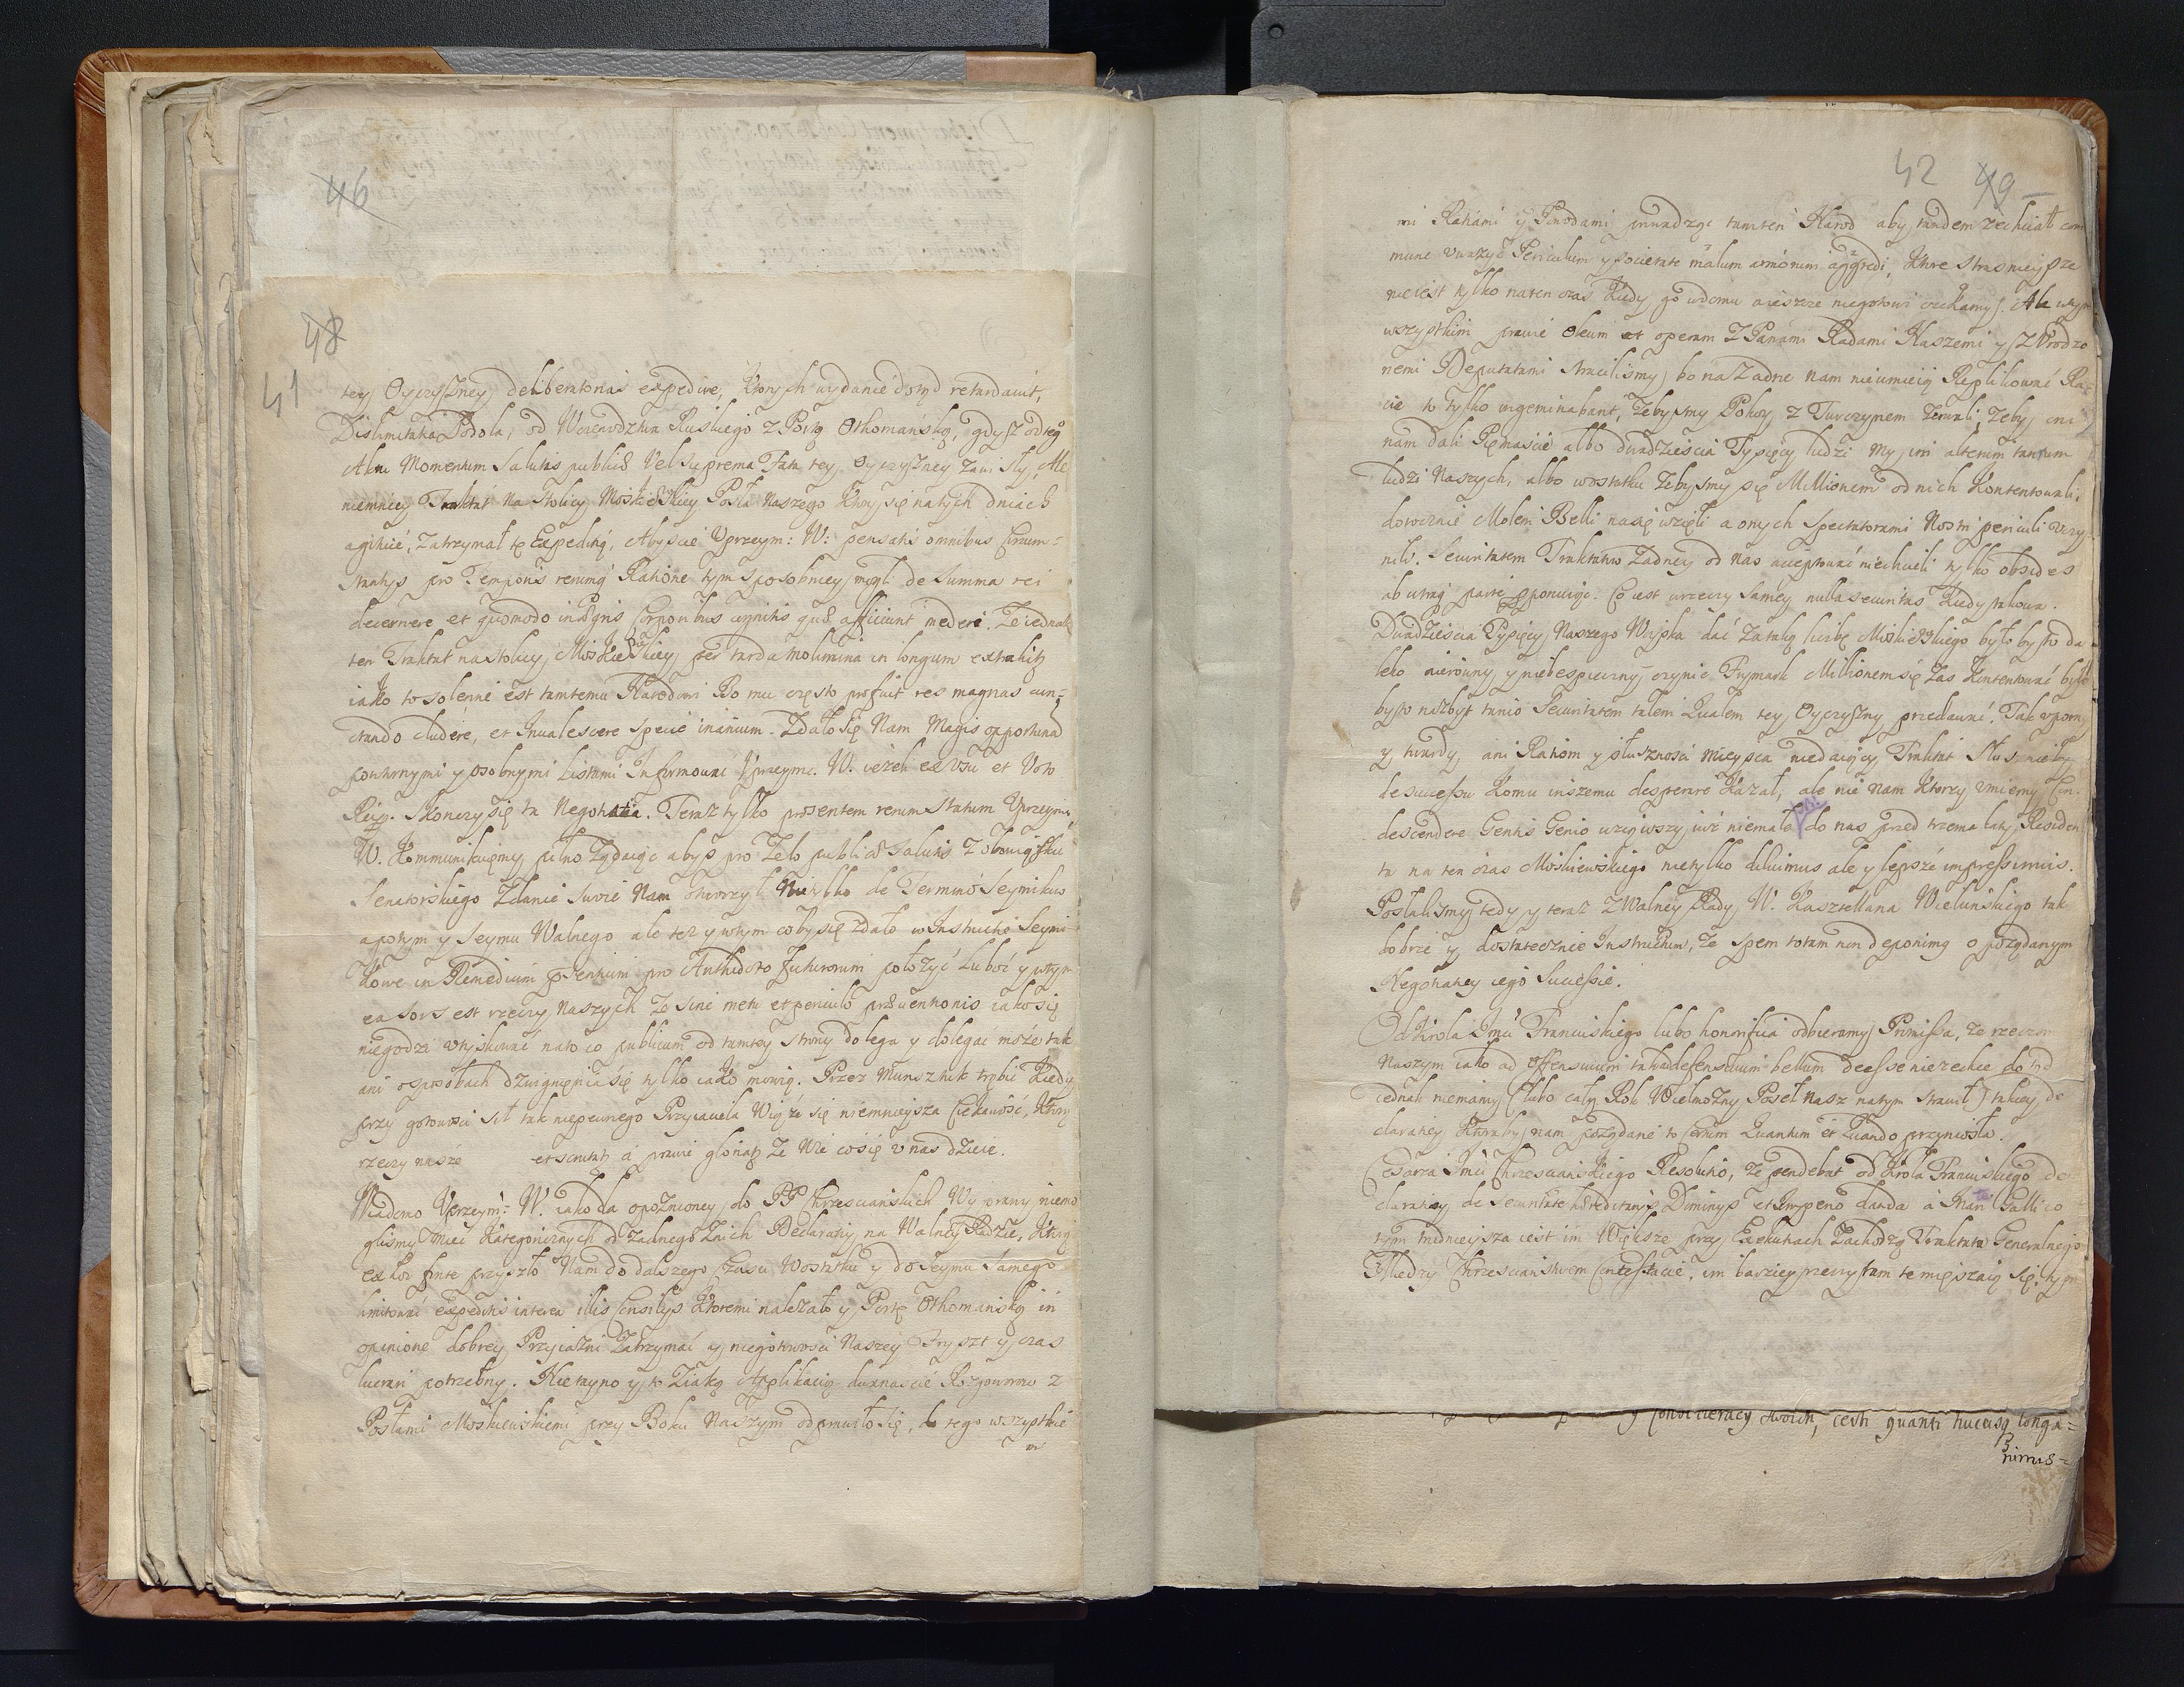 46
48
41
tey Oyczyzney deliberatorias expedire, ktorych wydanie dotąd retardavit,
Dislimitatia Podola, od Woiewodztwa Ruskiego z Portą Othomańską, gdysz od tego
Actu Momentum Salutis publicæ Vel suprema Fata tey Oyczyzney zawisły, Ale
niemniey Traktat na Stolicy Moskiewskiey Posła Naszego ktory się na tych dniach
agituie, zatrzymał tę Expeditią, Abyscie Uprzeym: W: pensatis omnibus Circum=
stantys pro Temporis rerumq Ratione tym sposobniey mogli de Summa rei
decernere et quomodo in ægris Corporibus cognitis quæ afficiunt mederi. Że iednak
ten Traktat na Stolicy Moskiewskiey per tarda molimina in longum extrahitur
iako to solenne est tamtemu Narodowi Bo mu często profuit res magnas cun=
ctando eludere, et Invalescere specie inanium. Zdało się Nam Magis opportuna
powtornymi y osobnymi Listami Informować Uprzeyme. W. ieżeli ex Usu et Voto
Reip. skonczy się ta Negotiatia. Teraz tylko præsentem rerum statum Uprzeymie
W. Kommunikuięmy pilno żądaiąc abyś pro Zelo publicæ Salutis z obowiąsku
Senatorskiego Zdanie swoie Nam otworzył Nie tylko de Termino Seymikow
a potym y Seymu Walnego ale też y w tym co by się zdało w Instructie Seymi=
kowe in Remedium præsentium pro Antidoto futurorum położyć Luboć y w tym
ea sors est rzeczy Naszych że sine metu et periculo præventionis iako się
niegodzi utyskiwać na to co publicum od tamtey strony dolega y dolegać może tak
ani o sposobach dzwignienia się tylko iako mowią. Przez Munsztuk trąbić Kiedy
przy gotowosci sił tak niepewnego Przyiaciela Wiąże się niemnieysza Ciekawość, ktory
rzeczy nasze et scrutatur a prawie gloriatur że Wie co się u nas dzieie.
Wiadomo Uprzeym: W. iako dla opoznioney do PP Chrzescianskich Wyprawy niemo
glismy mieć Kategorycznych od żadnego z nich Declaratiy na Walney Radzie, ktorą
ex hoc fonte przyszło Nam do dalszego Czasu Wostatku y do Seymu Samego
limitować expeditis interea illis Consilys ktoremi należało y Portę Othomańską in
opinione dobrey Przyiazni zatrzymać y niegotowosci Naszey Fryszt y czas
lucrari potrzebny. Nie tayno y to z iaką Applikacią dwanascie Rozgoworow z
Posłami Moskiewskiemi przy Boku Naszym odprawiło się, do tego wszystkie
mi
42 49
mi Ratiami y Powodami prowadząc tamten Narod aby tandem zechciał com
mune uważyć Periculum y societate malum armorum aggredi, ktore strasnieysze
nie iest tylko na ten czas Kiedy go w domu a ieszcze niegotowi czekamy. Ale w tym
wszystkim prawie Oleum et operam z Panami Radami Naszemi y z Urodzo
nemi Deputatami straciliśmy, bo na żadne nam nie umieią Replikować Ra=
cie to tylko ingeminabant, żebysmy Pokoy z Turczynem zerwali, żeby oni
nam dali Piętnascie albo dwadziescia Tysięcy ludzi my im alterum tantum
ludzi Naszych, albo wostatku żebysmy się Millionem od nich Kontentowali,
dorocznie Molem Belli na się wzięli a onych spectatorami Nostri periculi uczy=
nili. Securitatem Traktatu żadney od nas acceptować niechcieli tylko obsides
ab utraq parte proponuiąc. Co iest w rzeczy samey nulla securitas Kiedy takowa.
Dwadziescia Tysięcy Naszego Woyska dać za taką liczbę Moskiewskiego było by to da=
leko nierowny y niebespieczny czynić Frymark Millionem się zas Kontentować było
by to nazbyt tanio Securitatem talem Qualem tey Oyczyzny przedawać. Tak uporny
y twardy ani Ratiom y słusznosci mieysca niedaiący Traktat słusznie by
de successu komu inszemu desperare kazał, ale nie nam ktorzy umiemy Con=
descendere Gentis Genio wziąwszy iuż niemało do nas przed trzema laty Residen
ta na ten czas Moskiewskiego nie tylko diluimus ale y lepsze impressimus.
Posłaliśmy tedy y teraz z Walney Rady W. Kasztellana Wieluńskiego tak
dobrze y dostatecznie Instructum, że spem totam non deponimus o pożądanym
Negotiatiey iego Successie.
Od Krola Jmci Francuskiego lubo honorifica odbieramy Promissa, że rzeczom
Naszym iako ad offensivum tak ad defensivum bellum deesse nie zechce dotąd
iednak niemamy (lubo cały Rok Wielmożny Poseł Nasz na tym strawił) takiey de
claratiey ktoraby nam pożądane to Certum Quantum et Quando przyniosła.
Cesarza Jmci Chrzescianskiego Resolutio, że pendebat od Krola Francuskiego de
claratiey de Securitate hæreditariis Dominys et Imperio danda a Marte Gallico
tym trudnieysza iest im Większe przy Exekutiach zachodzą Traktatu Generalnego
Między Chrzescianstwem Contestacie, im bardziey przeszłym te mięszaią się, tym
y Confœderacy swoich, ceth quanti hucusq longa=
nimis=